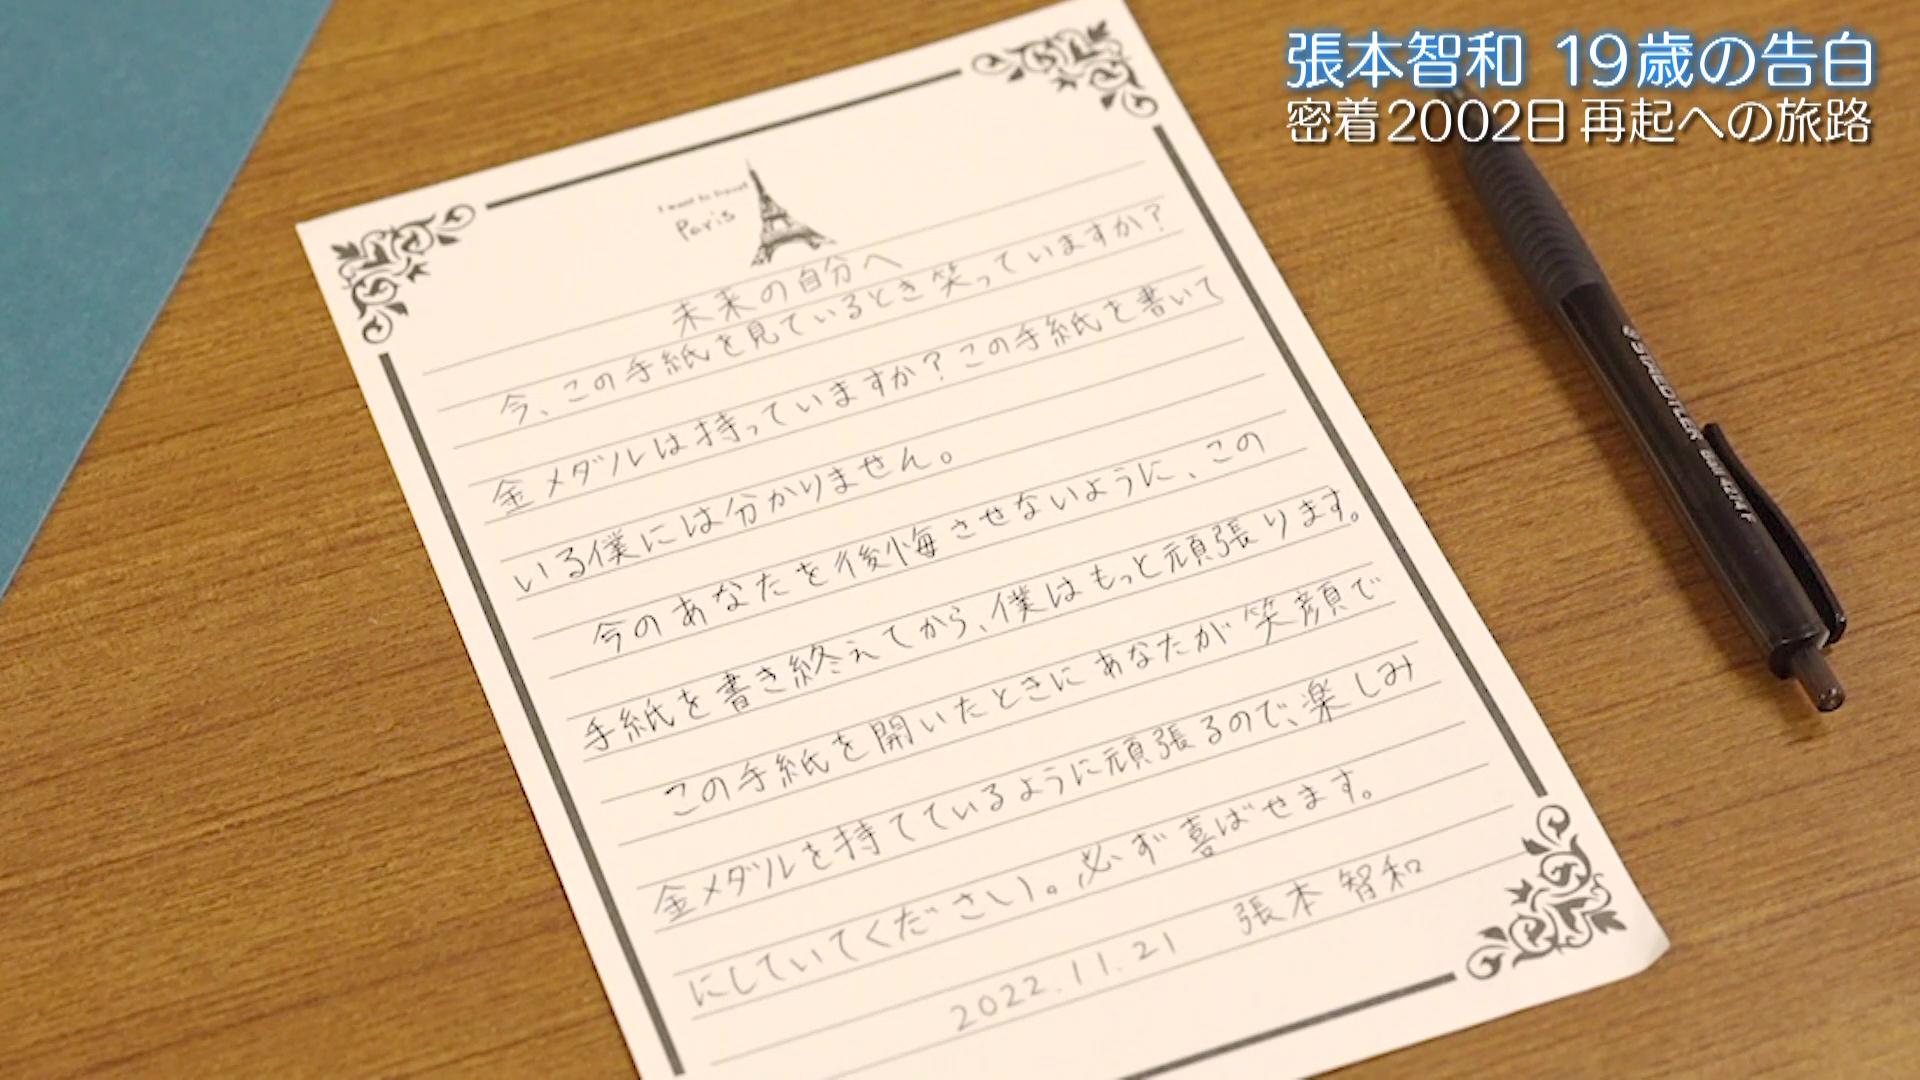 張本智和 19歳の告白
密着2002日 再起への旅路
I want to travel
Paris
未来の自分へ
今、この手紙を見ているとき笑っていますか?
金メダルは持っていますか?この手紙を書いて
いる僕には分かりません。
今のあなたを後悔させないように、この
手紙を書き終えてから、僕はもっと頑張ります。
この手紙を開いたときにあなたが笑顔で
金メダルを持てているように頑張るので、楽しみ
にしていてください。必ず喜ばせます。
2022.11.21 張本智和
STAEDTLER ball 424 F